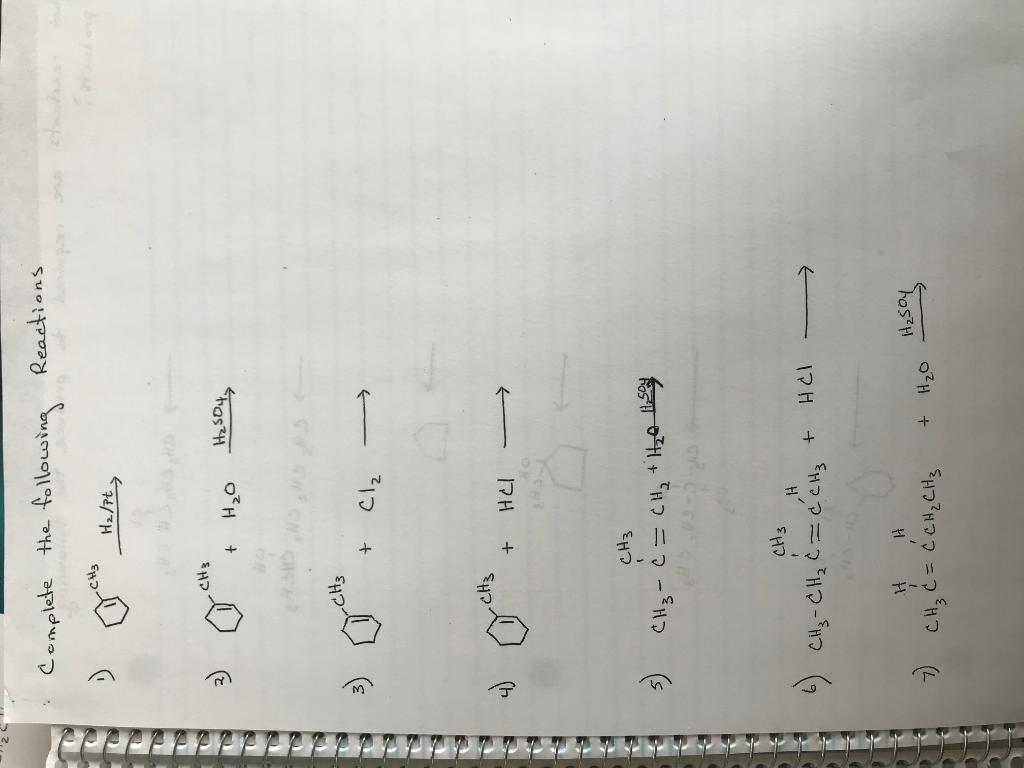 Complete the following Reactions
1) CH3 H2/Pt →
2) CH3 + H2O H2SO4 →
3) CH3 + Cl2 →
4) CH3 + HCl →
CH3
5) CH3-C=CH2 + H2O H2SO4 →
CH3 H
6) CH3-CH2C=CCH3 + HCl →
H H
7) CH3C=CCH2CH3 + H2O H2SO4 →